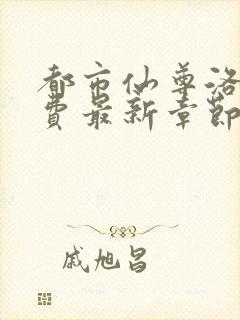 都市仙尊洛
费最新章節
戚旭昌